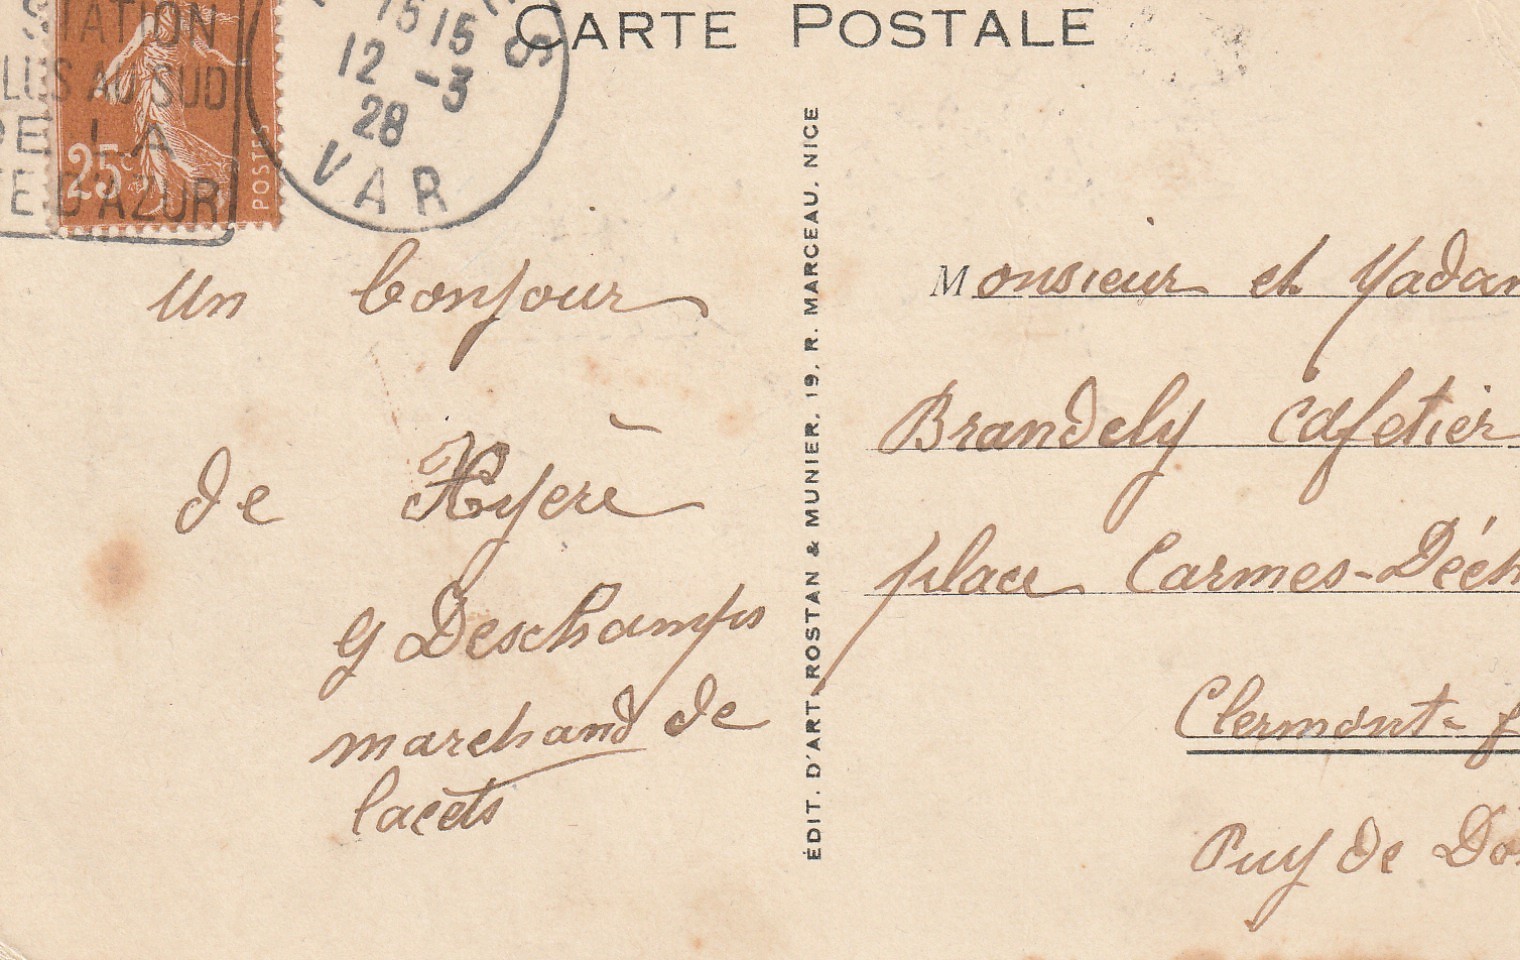 CARTE POSTALE
STATION
LUS AU SUD
DE LA
TE D'AZUR
25c
POSTES
15 15
12 -3
28
VAR
Un bonjour
de Hyère
G Deschamps
marchand de
lacets
ÉDIT. D'ART, ROSTAN & MUNIER, 19, R. MARCEAU, NICE
Monsieur et Madam
Brandely Cafetier
place Carmes-Déch
Clermont-f
Puy de Do